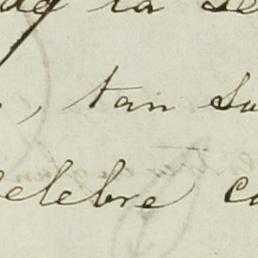 de la se
, tan su
celebre co